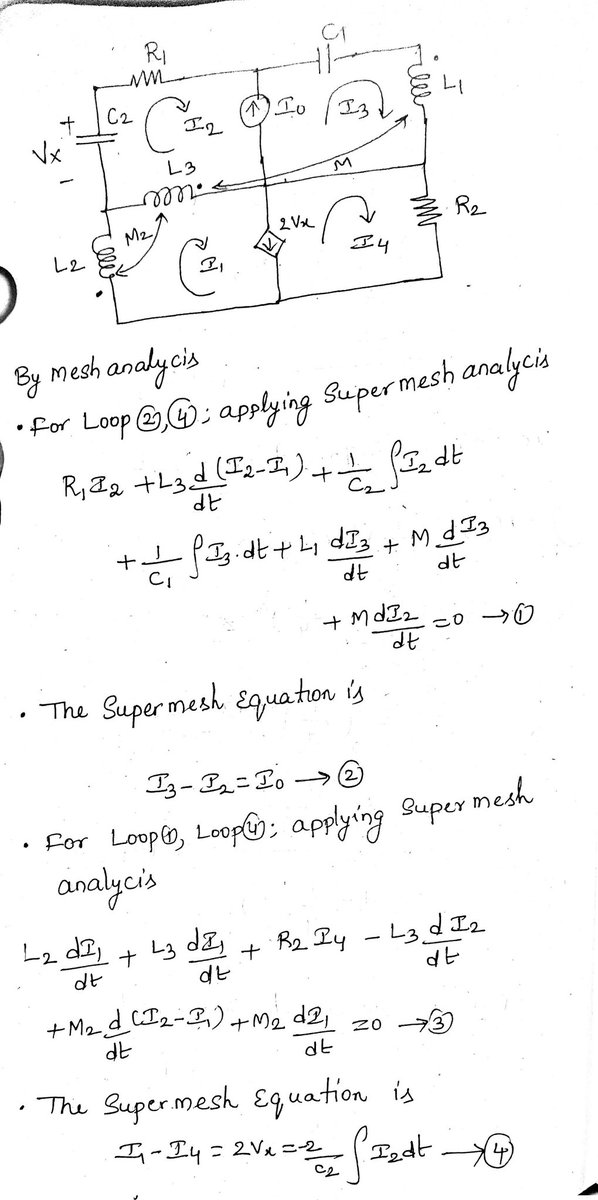 R1
C1
L1
I0
I3
C2
I2
+
Vx
-
L3
M
M2
2Vx
R2
L2
I1
I4
By mesh analycis
• For Loop ②,④; applying Supermesh analycis
R1 I2 + L3 d/dt (I2-I1) + 1/C2 ∫I2 dt
+ 1/C1 ∫I3.dt + L1 dI3/dt + M dI3/dt
+ M dI2/dt = 0 → ①
• The Supermesh Equation is
I3 - I2 = I0 → ②
• For Loop①, Loop④; applying Supermesh
analycis
L2 dI1/dt + L3 dI1/dt + R2 I4 - L3 dI2/dt
+ M2 d/dt (I2-I1) + M2 dI1/dt = 0 → ③
• The Supermesh Equation is
I1 - I4 = 2Vx = -2/C2 ∫I2dt → ④